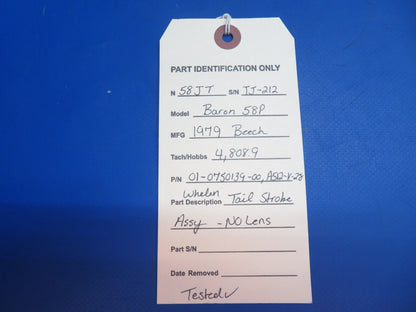 PART IDENTIFICATION ONLY
N 58JT S/N TJ-212
Model Baron 58P
MFG 1979 Beech
Tach/Hobbs 4,808.9
P/N 01-0750139-00, A512-V-28
Whelen
Part Description Tail Strobe
Assy - NO Lens
Part S/N
Date Removed
Tested ✓